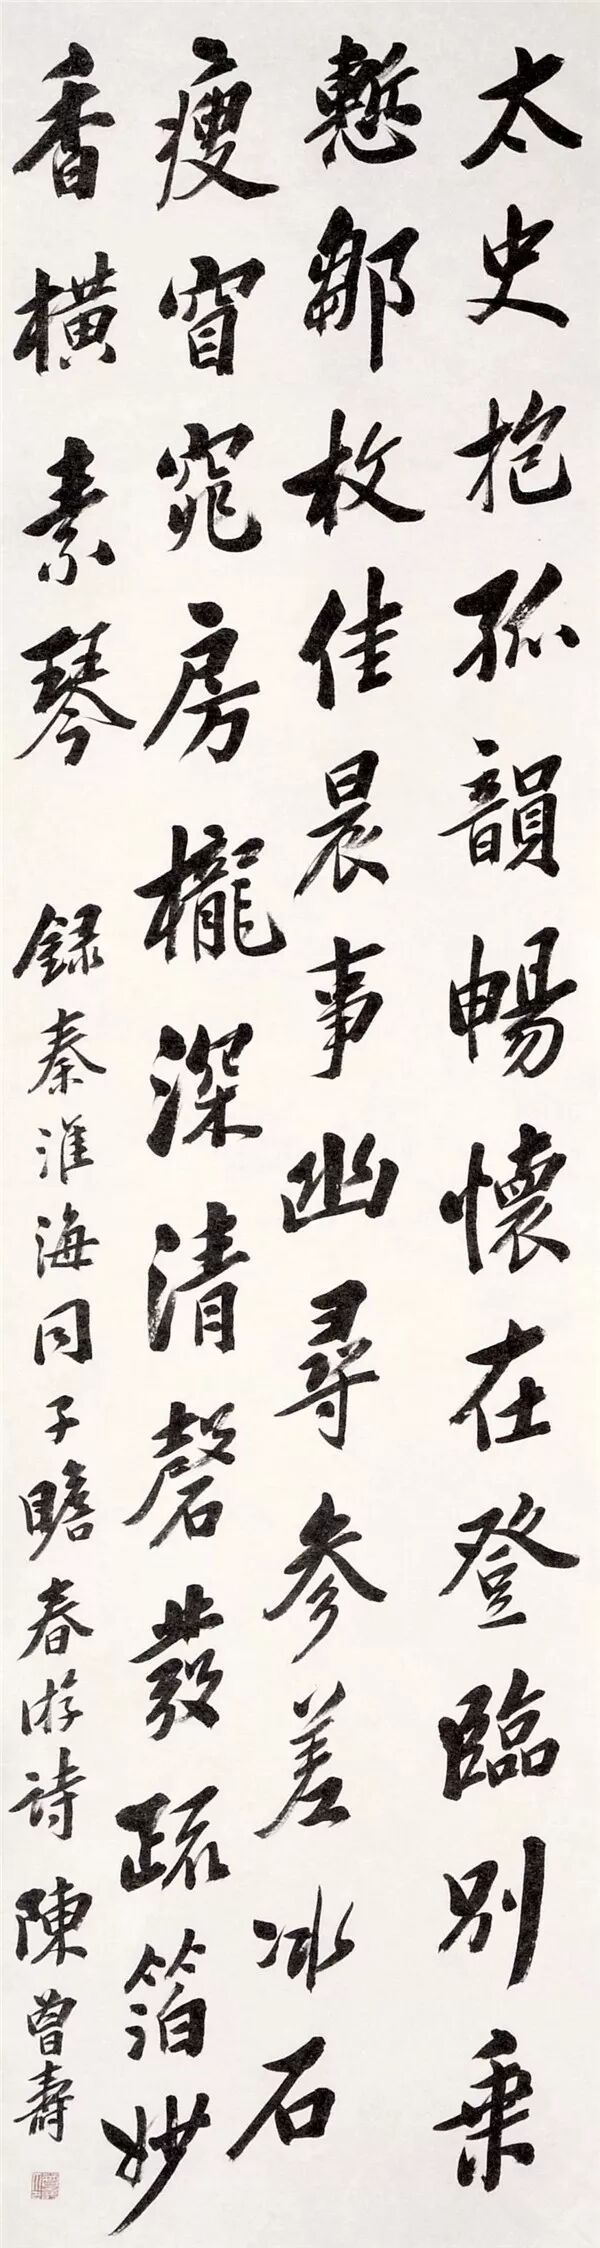 太史抱孤韻暢懷在登臨別乗
慙鄒枚佳晨事幽尋參差冰石
瘦窅窕房櫳深清磬發疏箔妙
香橫素琴 録秦淮海同子瞻春游诗 陳曾壽